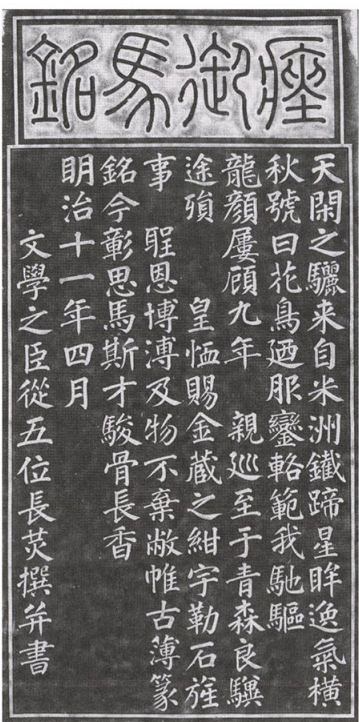 瘞御馬銘
天閑之驪来自米洲鐵蹄星眸逸氣橫
秋號曰花鳥廼服鑾輅範我馳驅
龍顏屢顧九年　親巡至于青森良驥
途殞　皇恤賜金蔵之紺宇勒石旌
事　聖恩博溥及物不棄敝帷古薄篆
銘今彰思馬斯才駿骨長香
明治十一年四月
文學之臣從五位長炗撰并書